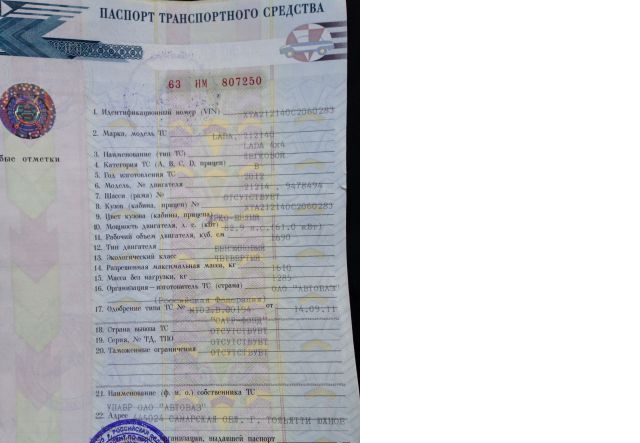 ПАСПОРТ ТРАНСПОРТНОГО СРЕДСТВА
63 НМ 807250
1. Идентификационный номер (VIN) XTA212140C2060283
2. Марка, модель ТС LADA, 212140
LADA 4x4
3. Наименование (тип ТС) ЛЕГКОВОЙ
4. Категория ТС (А, В, С, D, прицеп) В
5. Год изготовления ТС 2012
6. Модель, № двигателя 21214 , 9478494
7. Шасси (рама) № ОТСУТСТВУЕТ
8. Кузов (кабина, прицеп) № XTA212140C2060283
9. Цвет кузова (кабины, прицепа)
10. Мощность двигателя, л. с. (кВт) 82.9 л.с.(61.0 кВт)
11. Рабочий объем двигателя, куб. см 1690
12. Тип двигателя БЕНЗИНОВЫЙ
13. Экологический класс ЧЕТВЕРТЫЙ
14. Разрешенная максимальная масса, кг 1610
15. Масса без нагрузки, кг 1285
16. Организация—изготовитель ТС (страна) ОАО "АВТОВАЗ"
(Российская Федерация)
17. Одобрение типа ТС № от 14.09.11
18. Страна вывоза ТС ОТСУТСТВУЕТ
19. Серия, № ТД, ТПО ОТСУТСТВУЕТ
20. Таможенные ограничения ОТСУТСТВУЕТ
21. Наименование (ф. и. о.) собственника ТС
ОАО "АВТОВАЗ"
22. Адрес 445024 САМАРСКАЯ ОБЛ. Г. ТОЛЬЯТТИ ЮЖНОЕ
организации, выдавшей паспорт
бые отметки